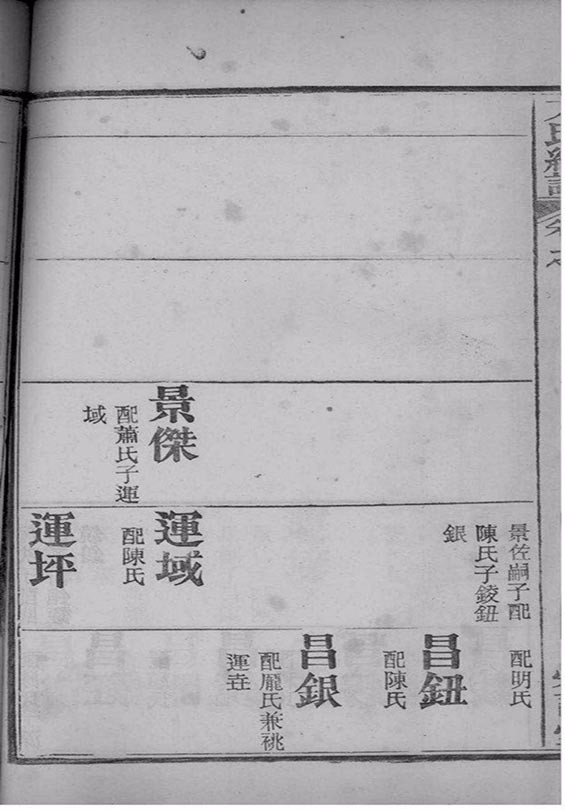 景傑
配蕭氏子運
域
景佐嗣子配
陳氏子錂鈕
銀
運域
配陳氏
運坪
配明氏
昌鈕
配陳氏
昌銀
配龐氏兼祧
運垚